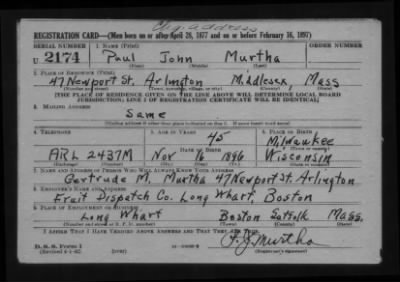 Chg. address
REGISTRATION CARD—(Men born on or after April 28, 1877 and on or before February 16, 1897)
SERIAL NUMBER 1. NAME (Print) ORDER NUMBER
U 2174 Paul John Murtha
(First) (Middle) (Last)
2. PLACE OF RESIDENCE (Print)
47 Newport St. Arlington Middlesex, Mass
(Number and street) (Town, township, village, or city) (County) (State)
[THE PLACE OF RESIDENCE GIVEN ON THE LINE ABOVE WILL DETERMINE LOCAL BOARD
JURISDICTION; LINE 2 OF REGISTRATION CERTIFICATE WILL BE IDENTICAL]
3. MAILING ADDRESS
Same
[Mailing address if other than place indicated on line 2. If same insert word same]
4. TELEPHONE 5. AGE IN YEARS 6. PLACE OF BIRTH
45 Milwaukee
DATE OF BIRTH (Town or county)
ARL 2437M Nov 16 1896 Wisconsin
(Exchange) (Number) (Mo.) (Day) (Yr.) (State or country)
7. NAME AND ADDRESS OF PERSON WHO WILL ALWAYS KNOW YOUR ADDRESS
Gertrude M. Murtha 47 Newport St. Arlington
8. EMPLOYER'S NAME AND ADDRESS
Fruit Dispatch Co. Long Wharf, Boston
9. PLACE OF EMPLOYMENT OR BUSINESS
Long Wharf Boston Suffolk Mass.
(Number and street or R. F. D. number) (Town) (County) (State)
I AFFIRM THAT I HAVE VERIFIED ABOVE ANSWERS AND THAT THEY ARE TRUE.
D. S. S. Form 1
(Revised 4-1-42) (over) (Registrant's signature)